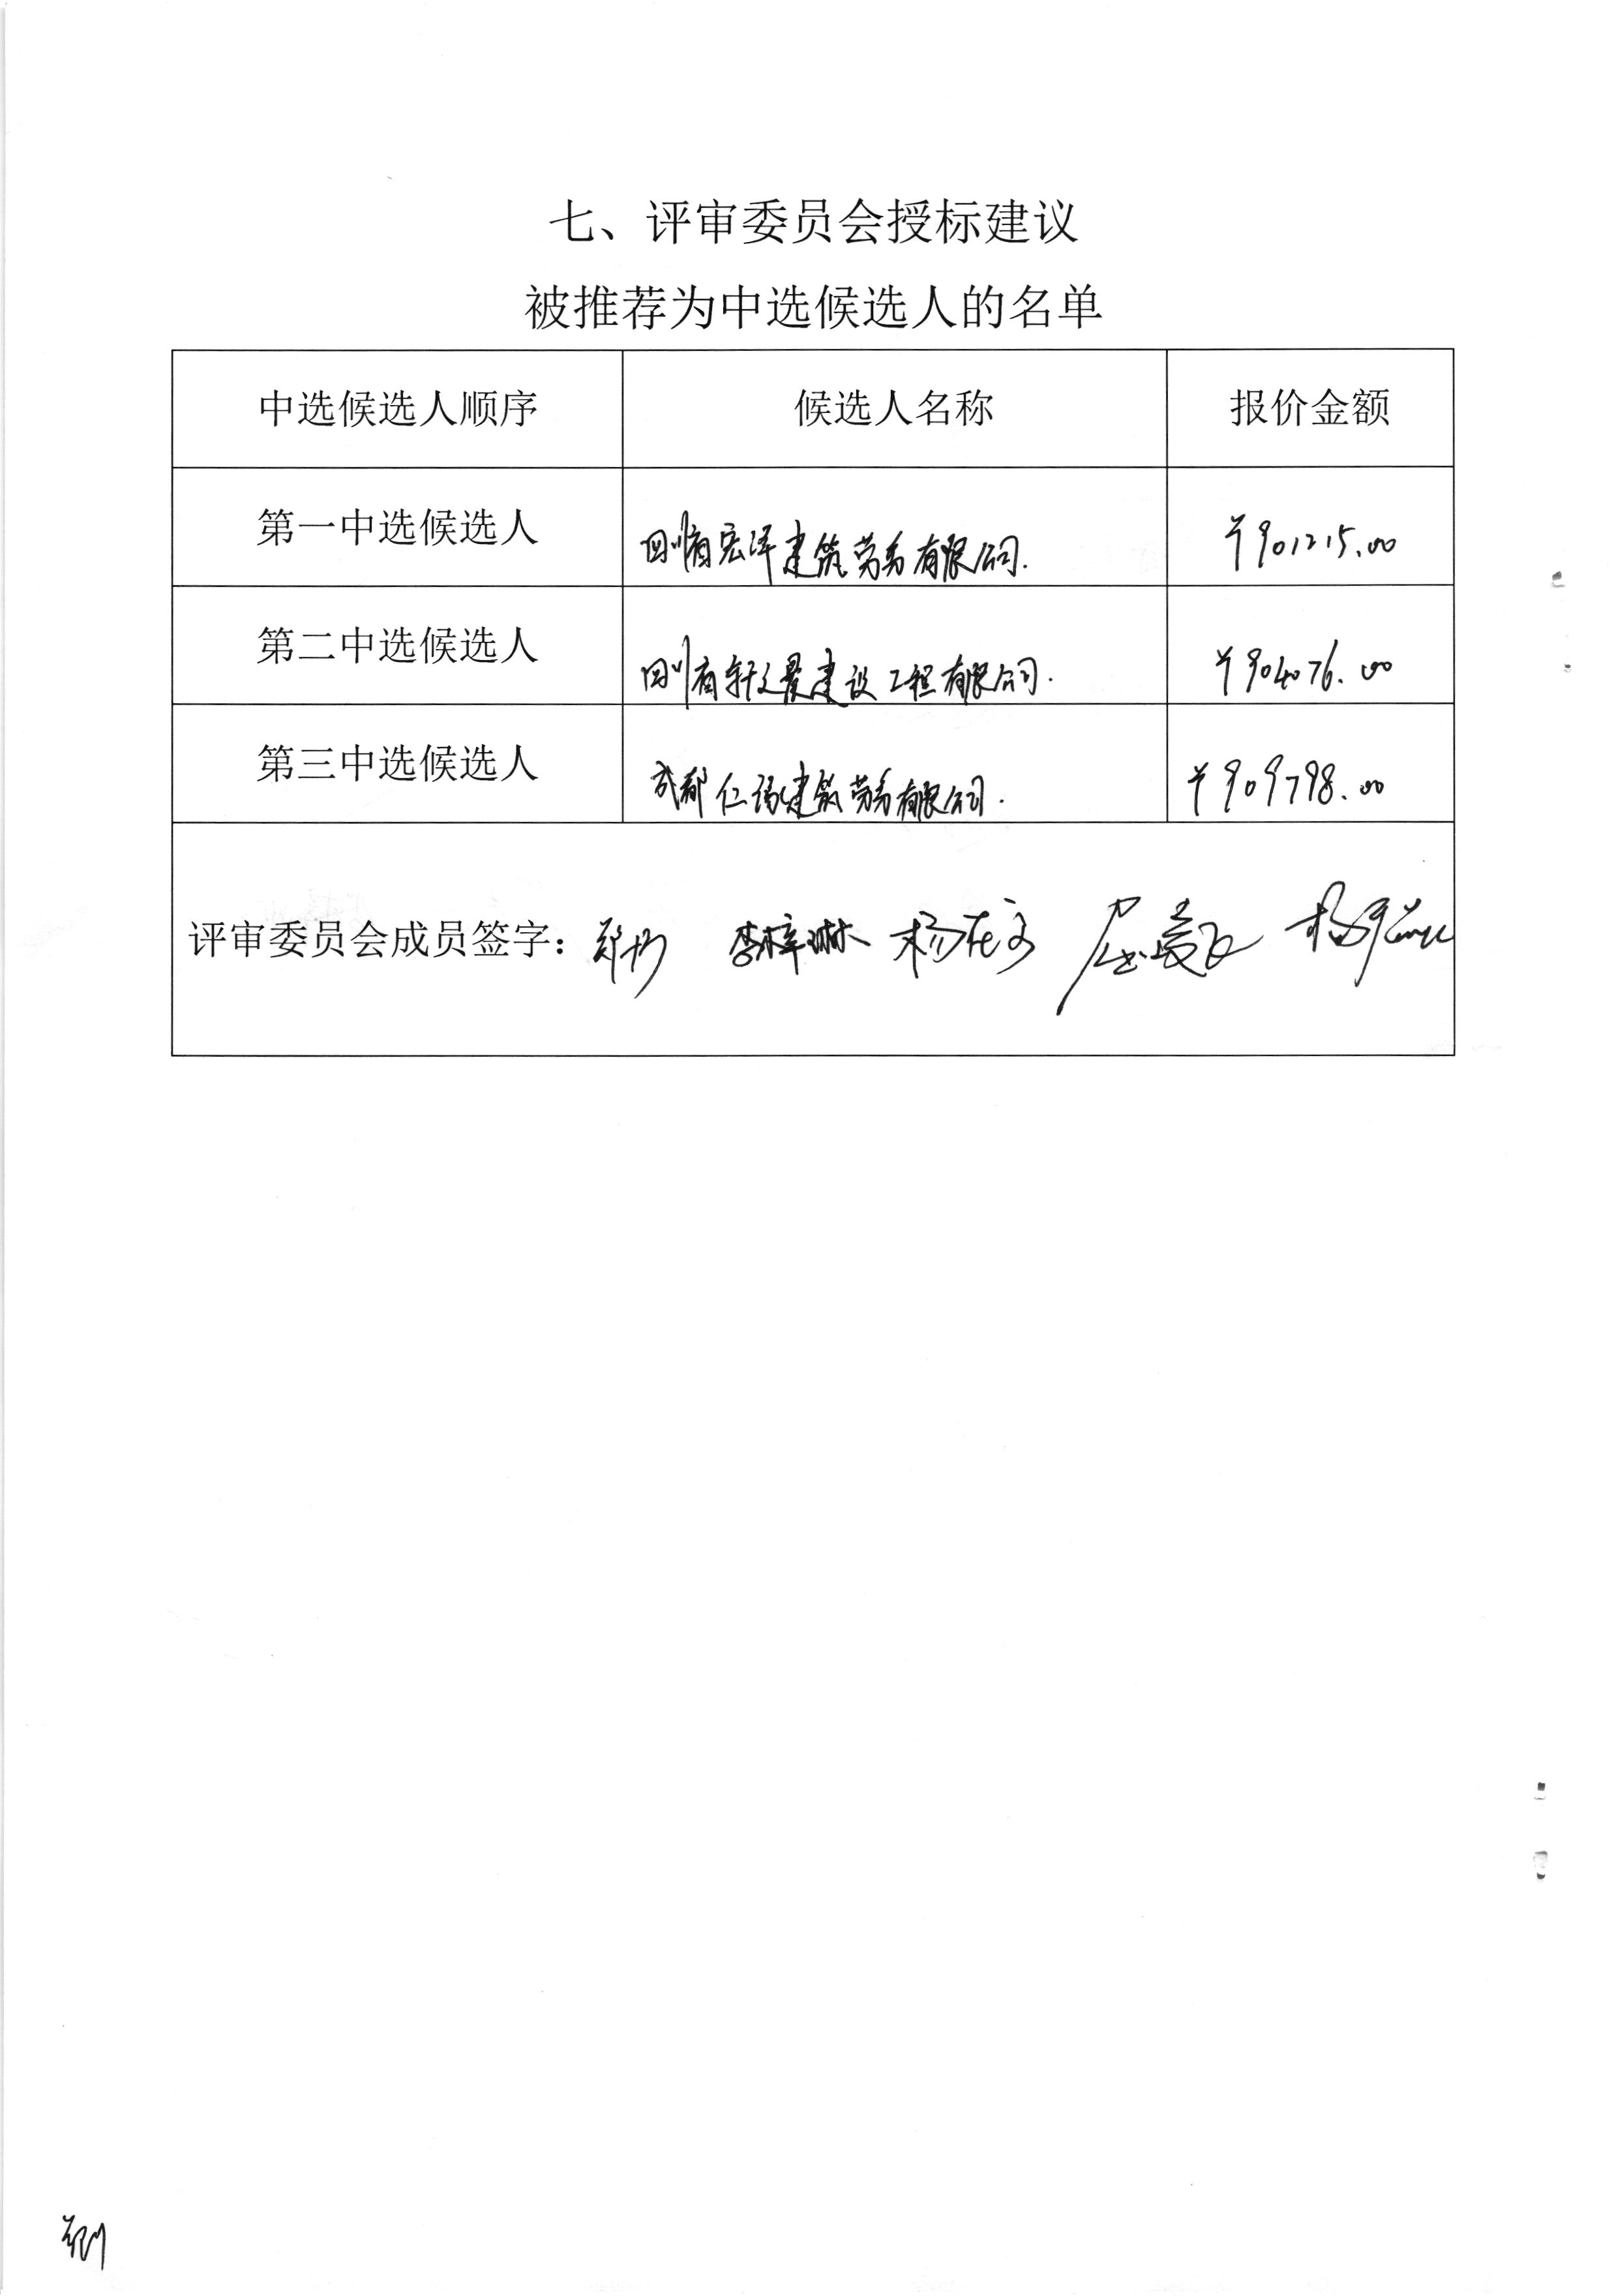 七、评审委员会授标建议
被推荐为中选候选人的名单
中选候选人顺序 候选人名称 报价金额
第一中选候选人 四川省宏泽建筑劳务有限公司. ¥901215.00
第二中选候选人 四川省轩之景建设工程有限公司. ¥904076.00
第三中选候选人 成都仁 建筑劳务有限公司. ¥909798.00
评审委员会成员签字: 李梓琳